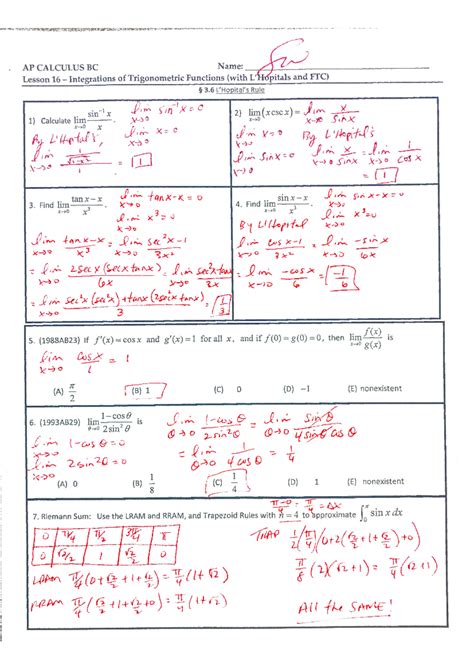 AP CALCULUS BC Name:
Lesson 16 – Integrations of Trigonometric Functions (with L'Hopitals and FTC)
§ 3.6 L'Hopital's Rule
1) Calculate lim x→0 sin⁻¹x / x .
lim x→0 sin⁻¹x = 0
lim x→0 x = 0
By L'Hopital's,
lim x→0 (1/√(1-x²)) / 1 = 1
2) lim x→0 (x csc x) = lim x→0 x / sin x
lim x→0 x = 0
lim x→0 sin x = 0
By L'Hopital's
lim x→0 x / sin x = lim x→0 1 / cos x
= 1
3. Find lim x→0 (tan x − x) / x³ .
lim x→0 tan x - x = 0
lim x→0 x³ = 0
lim x→0 (tan x - x) / x³ = lim x→0 (sec²x - 1) / 3x²
= lim x→0 2 sec x (sec x tan x) / 6x = lim x→0 sec²x tan x / 3x
= lim x→0 (sec²x (sec²x) + tan x (2 sec²x tan x)) / 3 = 1/3
4. Find lim x→0 (sin x − x) / x³ .
lim x→0 sin x - x = 0
lim x→0 x³ = 0
By L'Hopital
lim x→0 (cos x - 1) / 3x² = lim x→0 -sin x / 6x
= lim x→0 -cos x / 6 = -1/6
5. (1988AB23) If f'(x) = cos x and g'(x) = 1 for all x, and if f(0) = g(0) = 0, then lim x→0 f(x) / g(x) is
lim x→0 cos x / 1 = 1
(A) π/2 (B) 1 (C) 0 (D) −1 (E) nonexistent
6. (1993AB29) lim θ→0 (1 − cos θ) / (2 sin² θ) is
lim θ→0 (1 - cos θ) / (2 sin² θ) = lim θ→0 sin θ / (4 sin θ cos θ)
lim θ→0 1 - cos θ = 0
lim θ→0 2 sin² θ = 0
= lim θ→0 1 / (4 cos θ) = 1/4
(A) 0 (B) 1/8 (C) 1/4 (D) 1 (E) nonexistent
7. Riemann Sum: Use the LRAM and RRAM, and Trapezoid Rules with n = 4 to approximate ∫₀^π sin x dx
(π-0)/4 = π/4 = Δx
0 π/4 π/2 3π/4
0 √2/2 1 √2/2 0
LRAM π/4 (0 + √2/2 + 1 + √2/2) = π/4 (1 + √2)
RRAM π/4 (√2/2 + 1 + √2/2 + 0) = π/4 (1 + √2)
TRAP 1/2 (π/4) (0 + 2(√2/2 + 1 + √2/2) + 0)
π/8 (2)(√2 + 1) = π/4 (√2 + 1)
All the SAME!